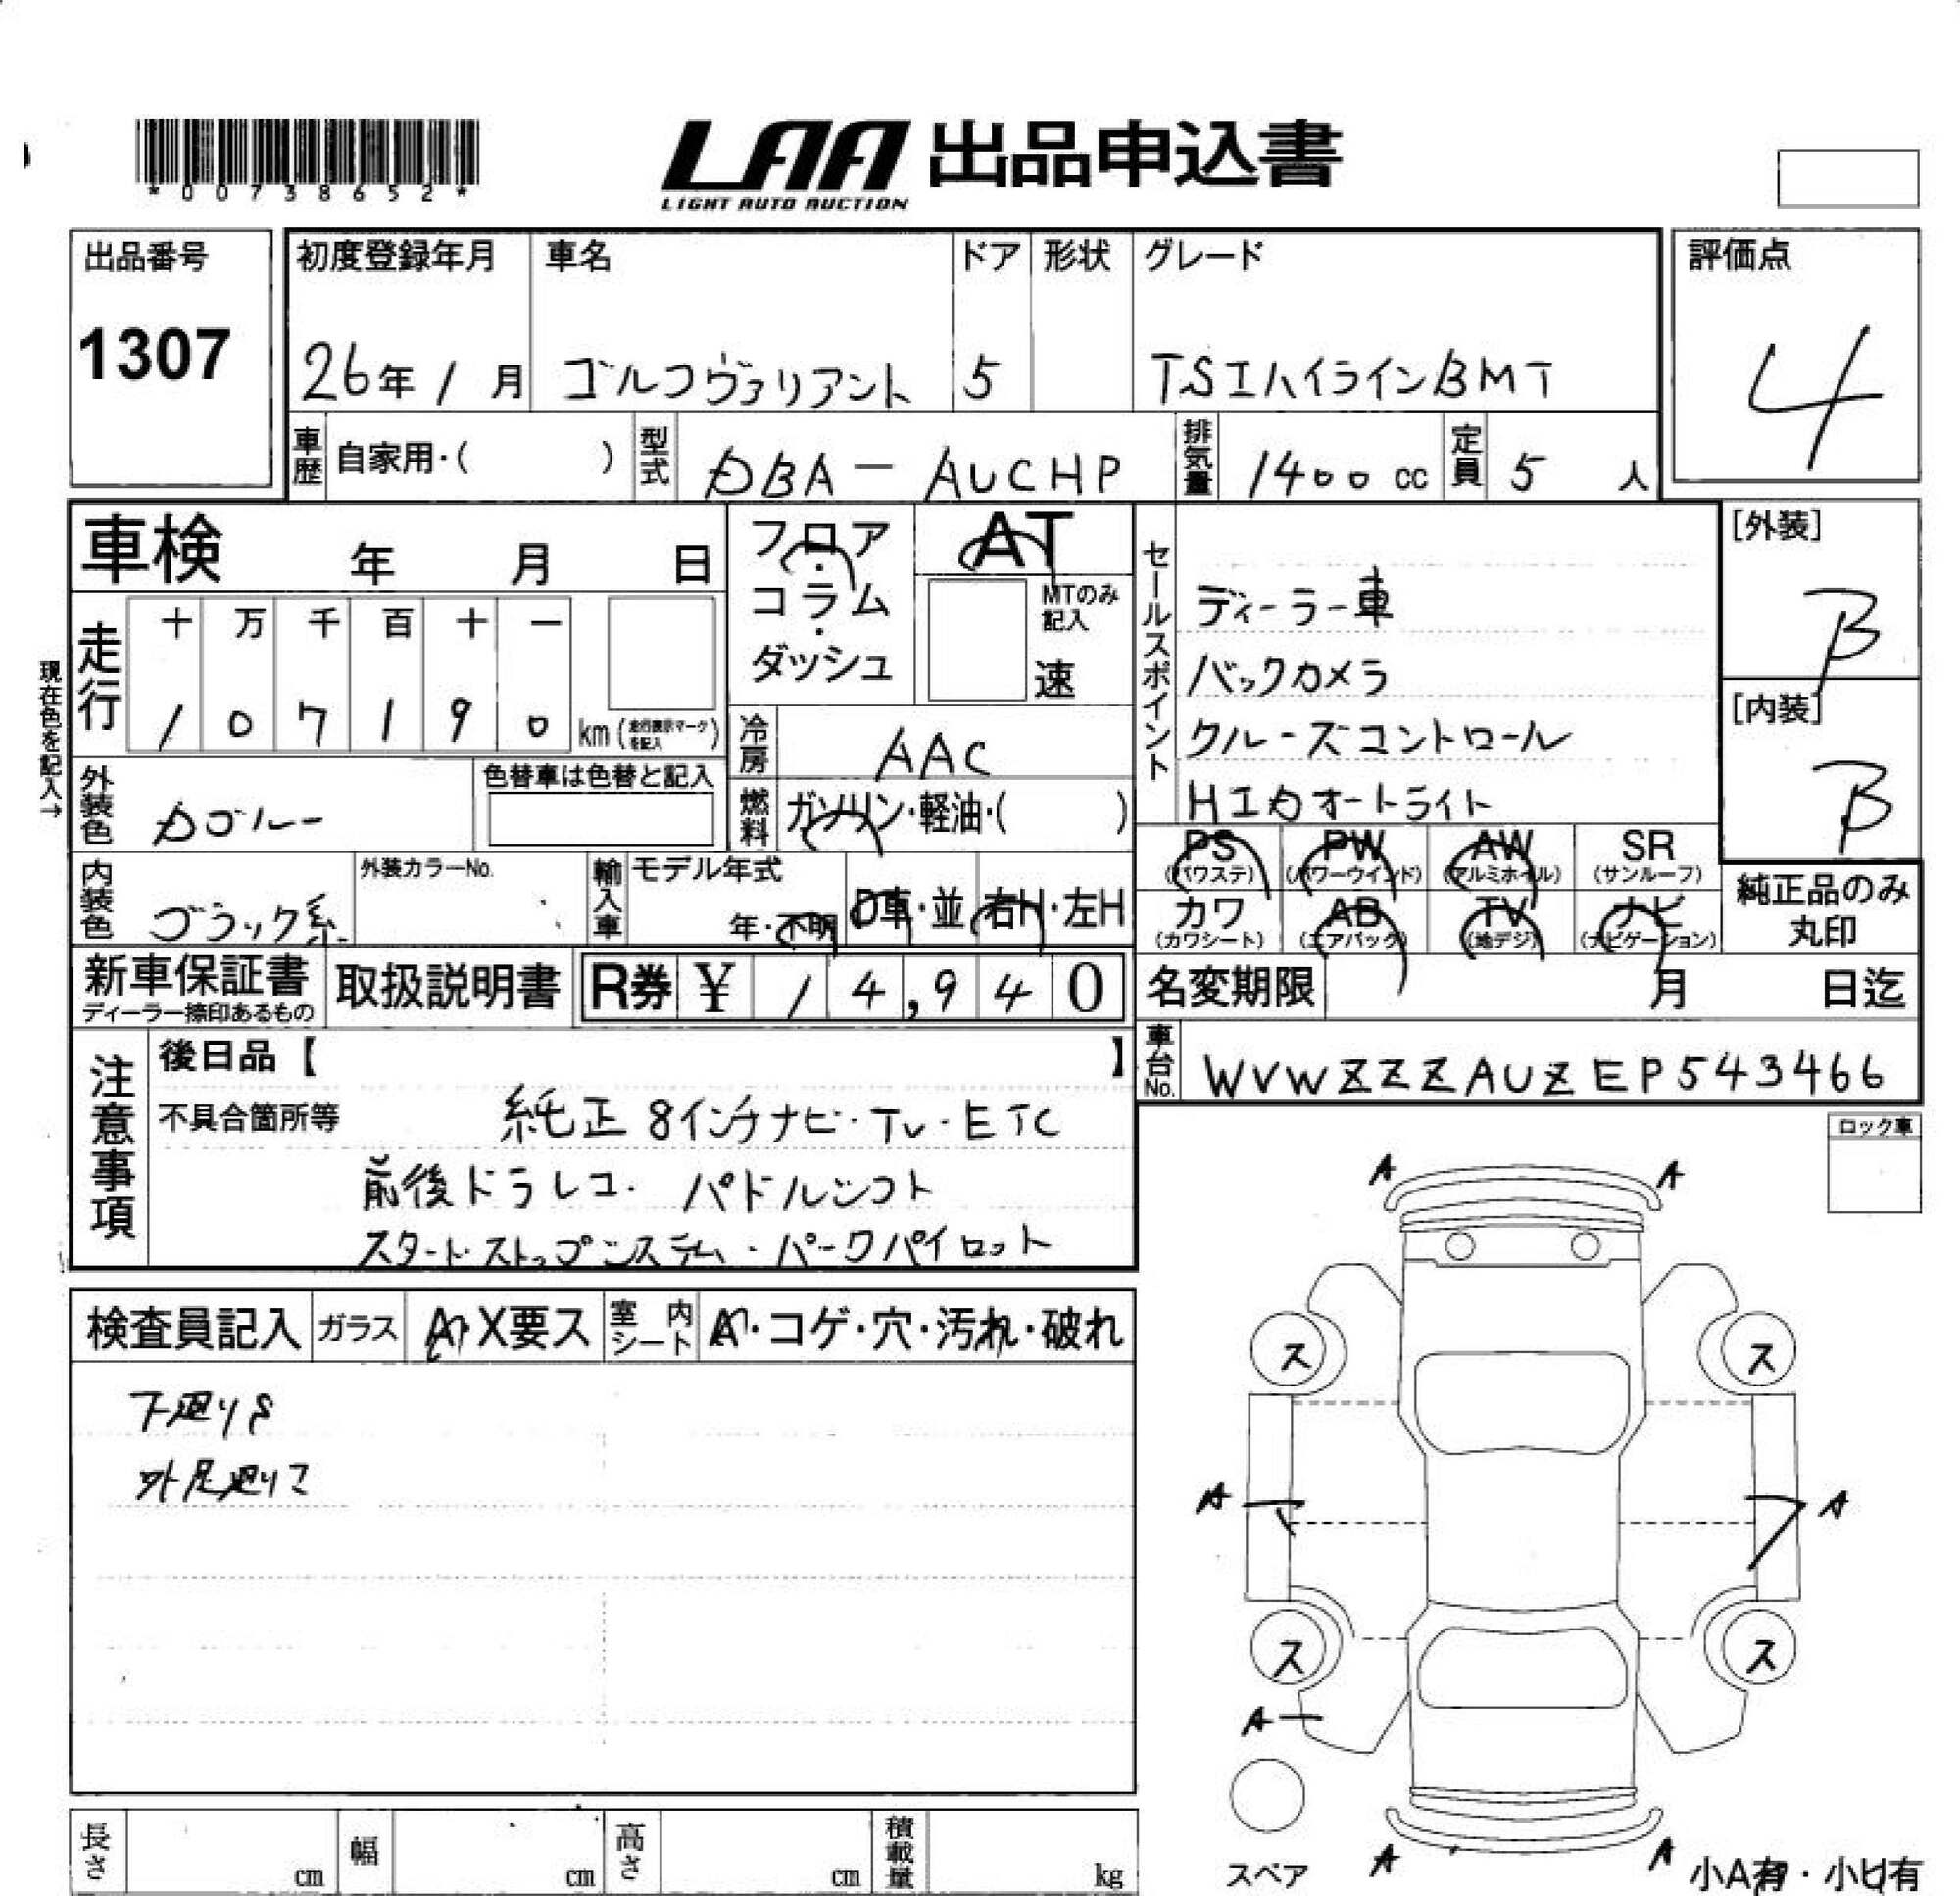 *00738652*
LAA 出品申込書
LIGHT AUTO AUCTION
出品番号
1307
初度登録年月
26年1月
車名
ゴルフヴァリアント
ドア
5
形状
グレード
TSIハイラインBMT
評価点
4
車歴 自家用・( )
型式 DBA-AUCHP
排気量 1400 cc
定員 5 人
車検 年 月 日
フロア・コラム・ダッシュ
AT
MTのみ記入
速
現在色を記入→
走行
十 万 千 百 十 一
1 0 7 1 9 0 km (走行表示マークを記入)
冷房 AAC
燃料 ガソリン・軽油・( )
外装色
色替車は色替と記入
内装色 ブラック系
外装カラーNo.
輸入車
モデル年式
年・不明
D車・並
右H・左H
セールスポイント
ディーラー車
バックカメラ
クルーズコントロール
オートライト
[外装]
B
[内装]
B
PS (パワステ)
PW (パワーウインド)
AW (アルミホイル)
SR (サンルーフ)
カワ (カワシート)
AB (エアバック)
TV (地デジ)
ナビ (ナビゲーション)
純正品のみ丸印
新車保証書
ディーラー捺印あるもの
取扱説明書
R券 ¥ 14,940
名変期限 月 日迄
車台No. WVWZZZAUZEP543466
注意事項
後日品【 】
不具合箇所等
純正8インチナビ・TV・ETC
前後ドラレコ・パドルシフト
スタートストップシステム・パークパイロット
ロック車
検査員記入
ガラス A・X要ス
室内シート A・コゲ・穴・汚れ・破れ
下廻りS
A A
ス ス
A A
ス ス
A
A A
スペア
小A有・小U有
長さ cm
幅 cm
高さ cm
積載量 kg